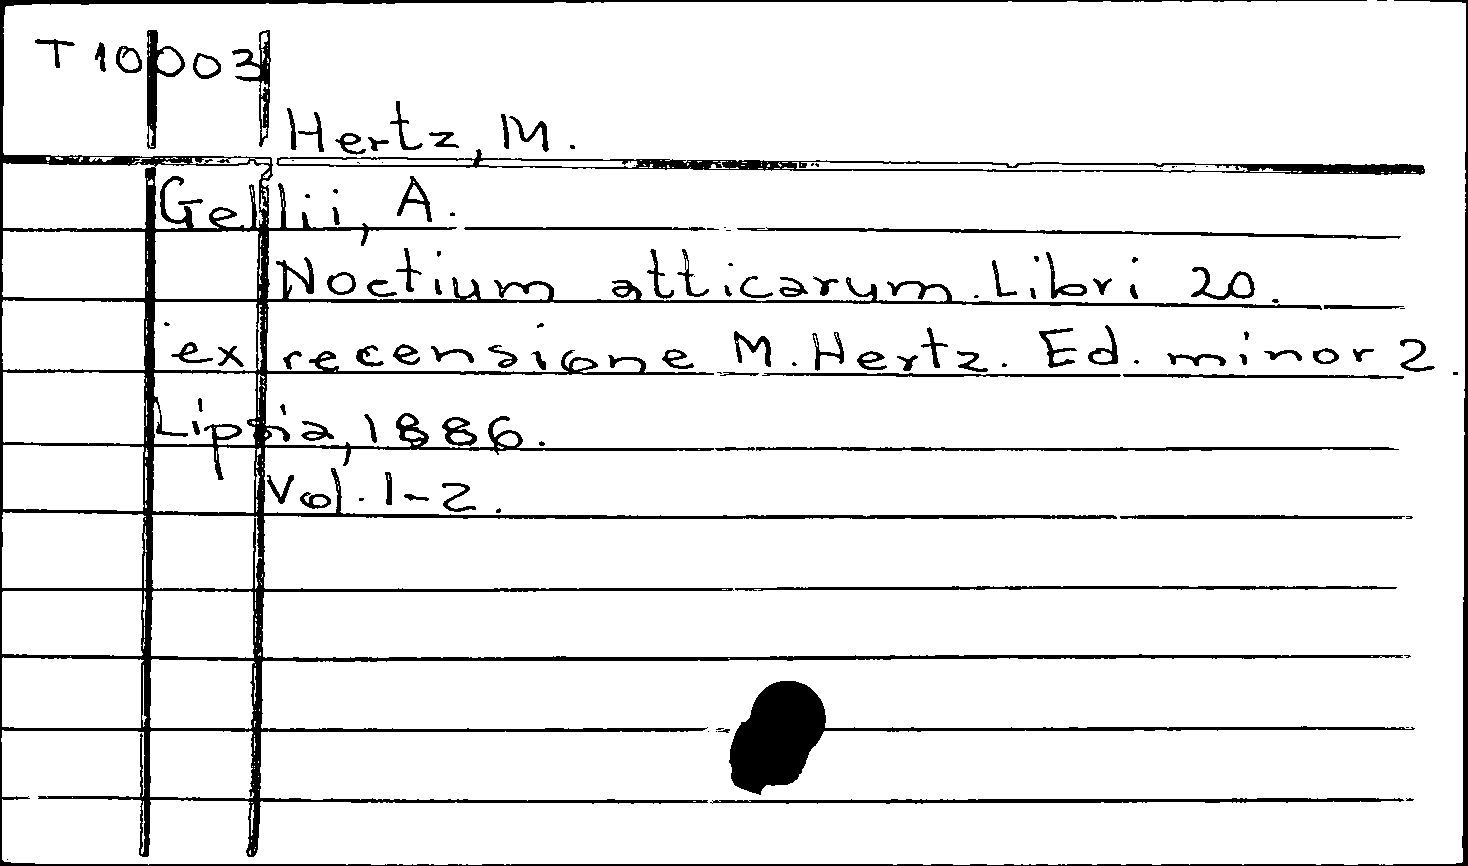 T 10003
Hertz, M.
Gellii, A.
Noctium atticarum. Libri 20.
ex recensione M. Hertz. Ed. minor 2.
Lipsia, 1886.
Vol. 1-2.